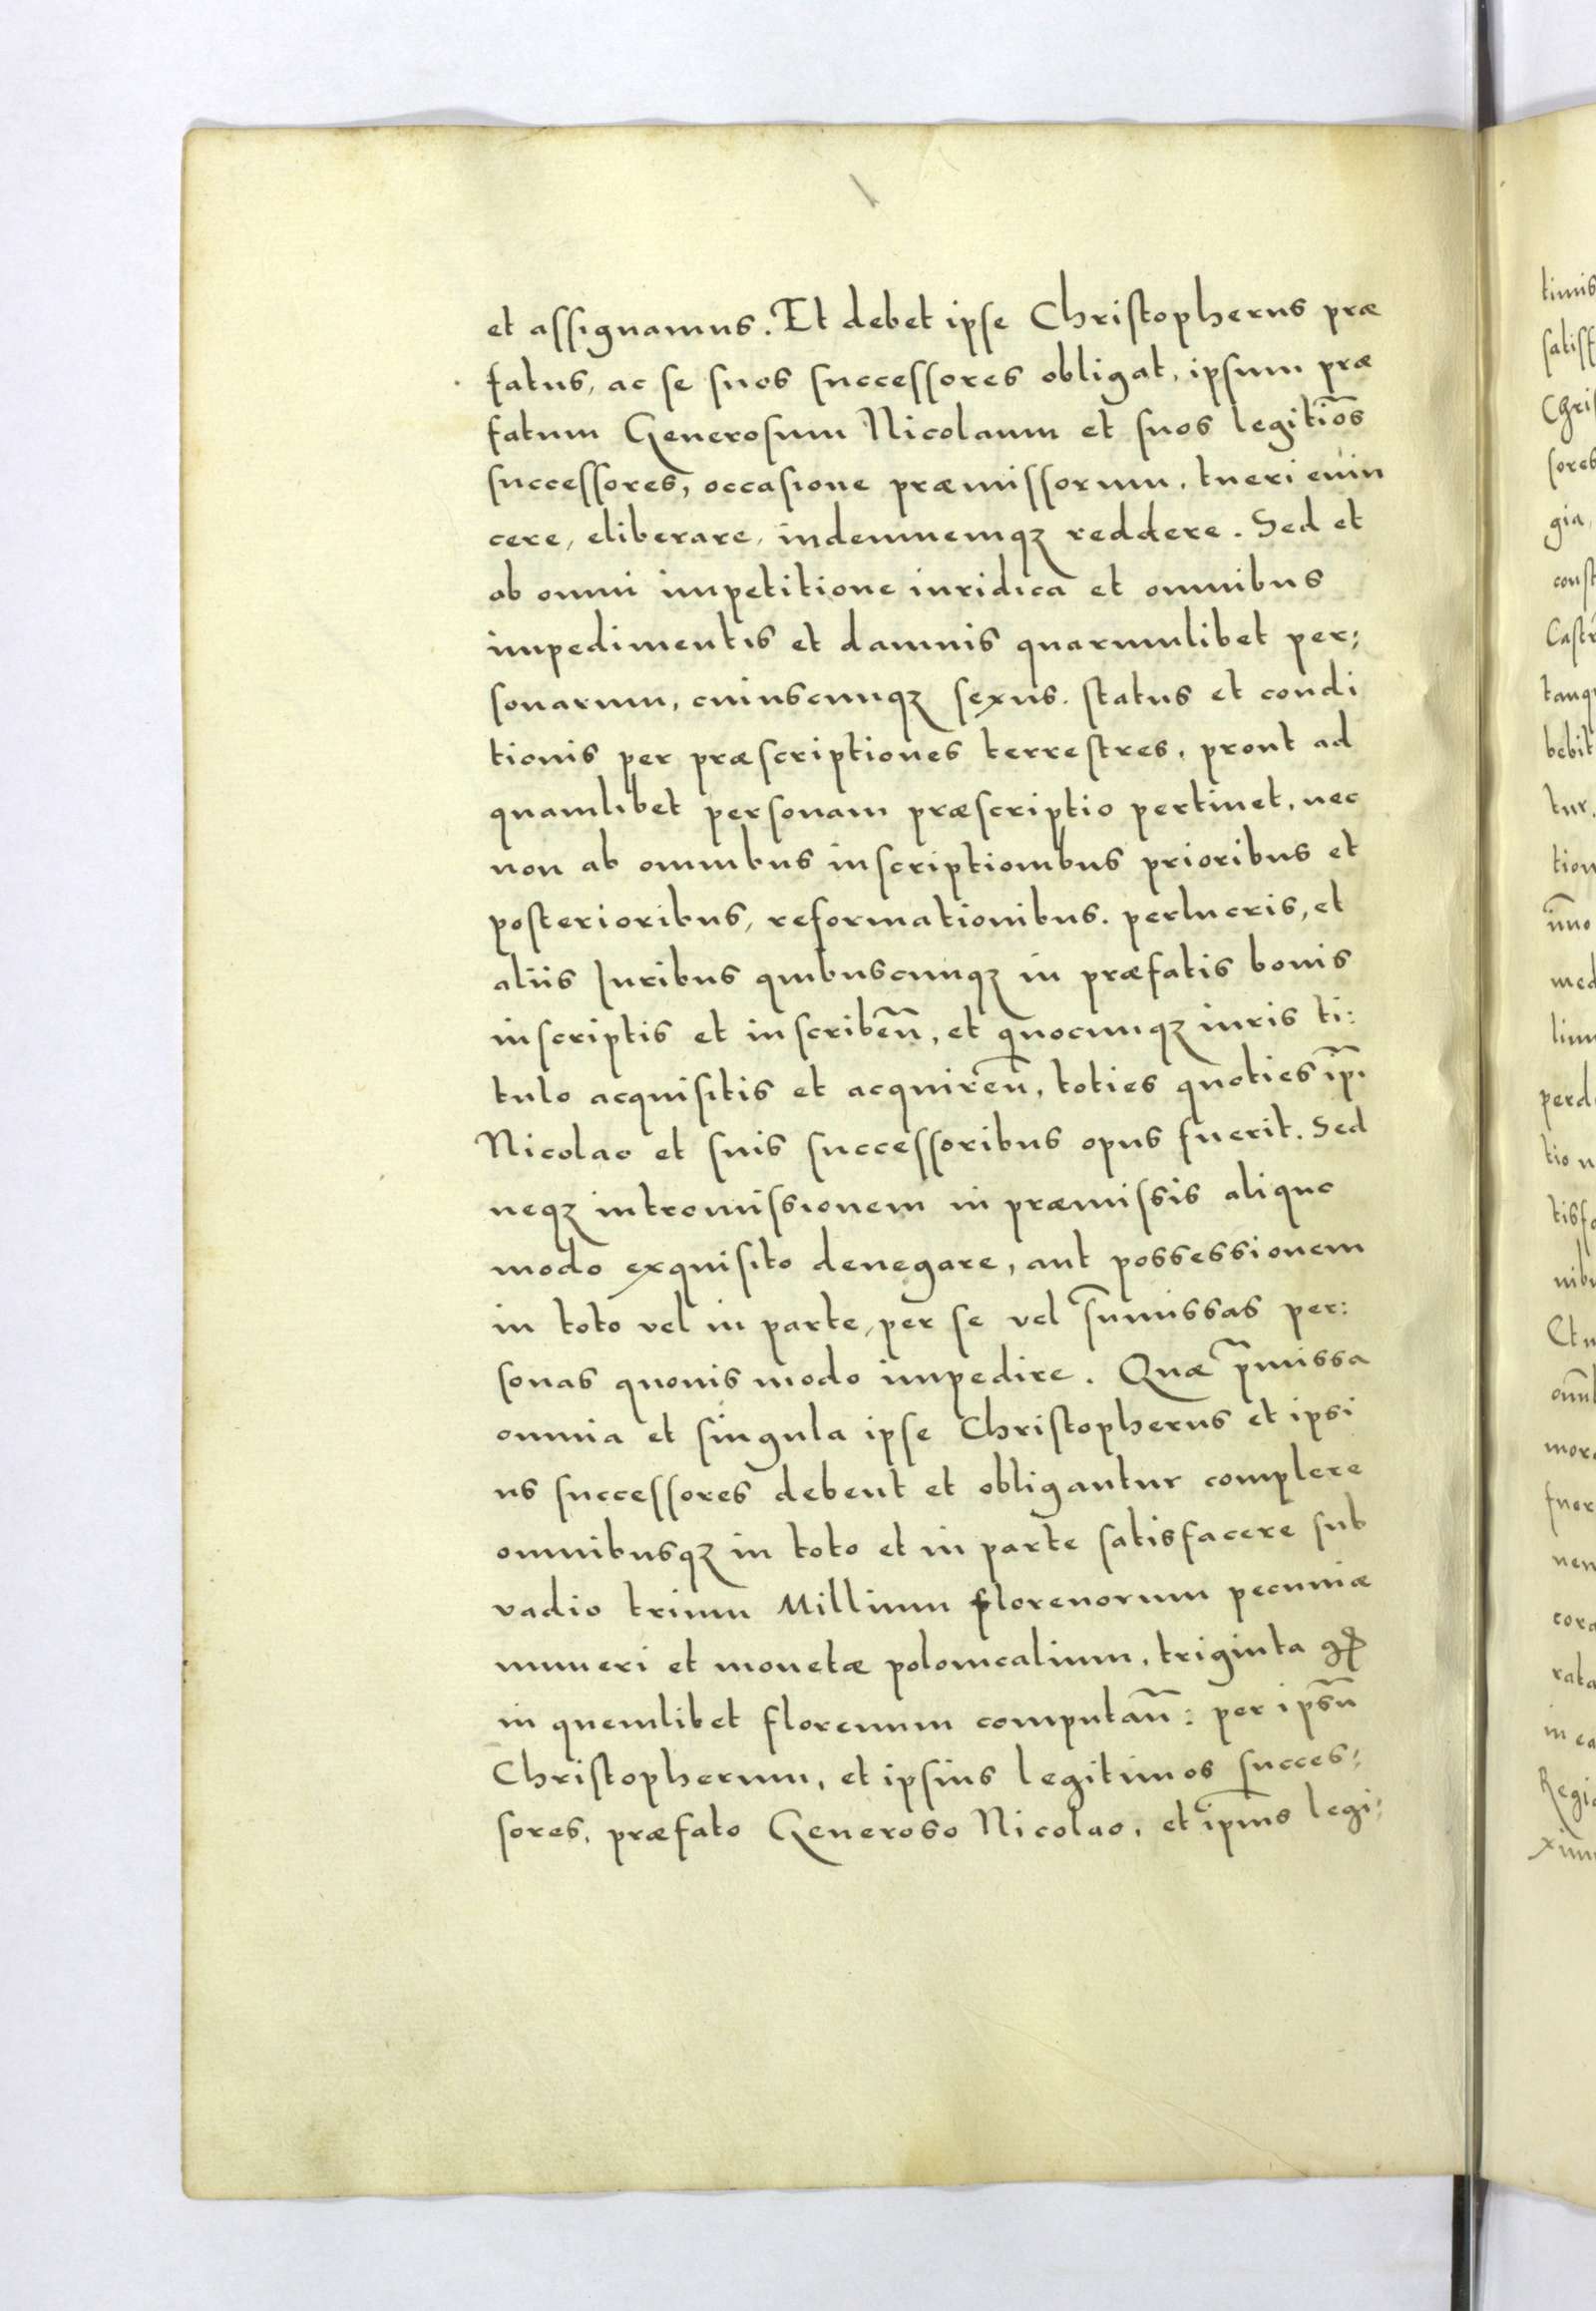 et assignamus. Et debet ipse Christopherus præ
fatus, ac se suos successores obligat, ipsum præ
fatum Generosum Nicolaum et suos legitiõs
successores, occasione præmissorum, tueri euin
cere, eliberare, indemnemqȝ reddere. Sed et
ob omni impetitione iuridica et omnibus
impedimentis et damnis quarumlibet per:
sonarum, cuiuscunqȝ sexus, status et condi
tionis per præscriptiones terrestres, prout ad
quamlibet personam præscriptio pertinet, nec
non ab omnibus inscriptionibus prioribus et
posterioribus, reformationibus. perlucris, et
aliis Iuribus quibuscunqȝ in præfatis bonis
inscriptis et inscribeñ, et quocunqȝ iuris ti:
tulo acquisitis et acquireñ, toties quoties ip̃i
Nicolao et suis successoribus opus fuerit. Sed
neqȝ intromissionem in præmissis aliquo
modo exquisito denegare, aut possessionem
in toto vel in parte, per se vel su̅missas per:
sonas quouis modo impedire. Quæ p̃missa
omnia et singula ipse Christopherus et ipsi
us successores debent et obligantur complere
omnibusqȝ in toto et in parte satisfacere sub
vadio trium Millium florenorum pecuniæ
numeri et monetæ polonicalium, triginta gр
in quemlibet florenum computañ: per ipsũ
Christopherum, et ipsius legitimos succes:
sores, præfato Generoso Nicolao, et ip̅ius legi:
timis
satisf
Chris
sores
gia,
const
Castr
tanq
bebit
tur.
tion
im̅o
med
lium
perd
tio n
tisfa
nibu
Et n
omnib
mor
fuer
nen
cora
rata
in ea
Regia
xim